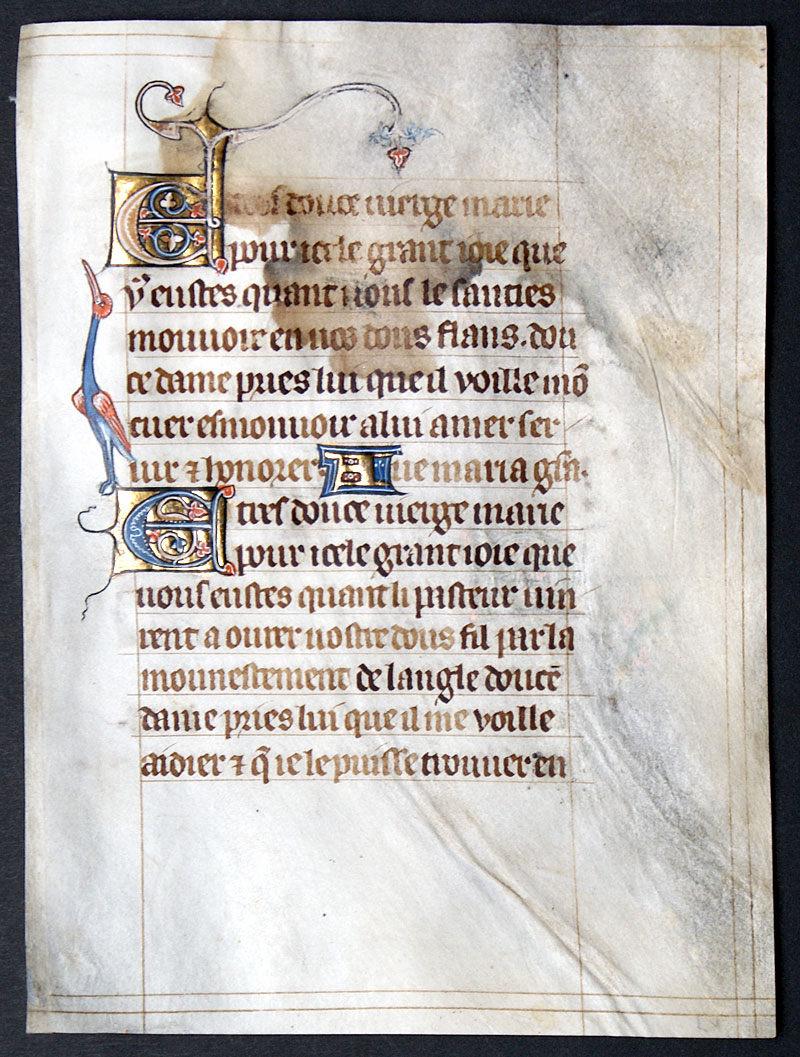 E tres douce uierge marie
pour icele grant ioie que
v͛ eustes quant uous le sauties
mouuoir en uos dous flans. dou
ce dame pries lui que il voille mō
cuer esmouuoir a lui amer ser
uir ⁊ hynorer Aue maria gr̄a.
E tres douce uierge marie
pour icele grant ioie que
uous eustes quant li pasteur uin
rent aourer uostre dous fil par la
mounestement de langle doucē
dame pries lui que il me voille
aidier ⁊ q̄ ie le puisse trouuer en